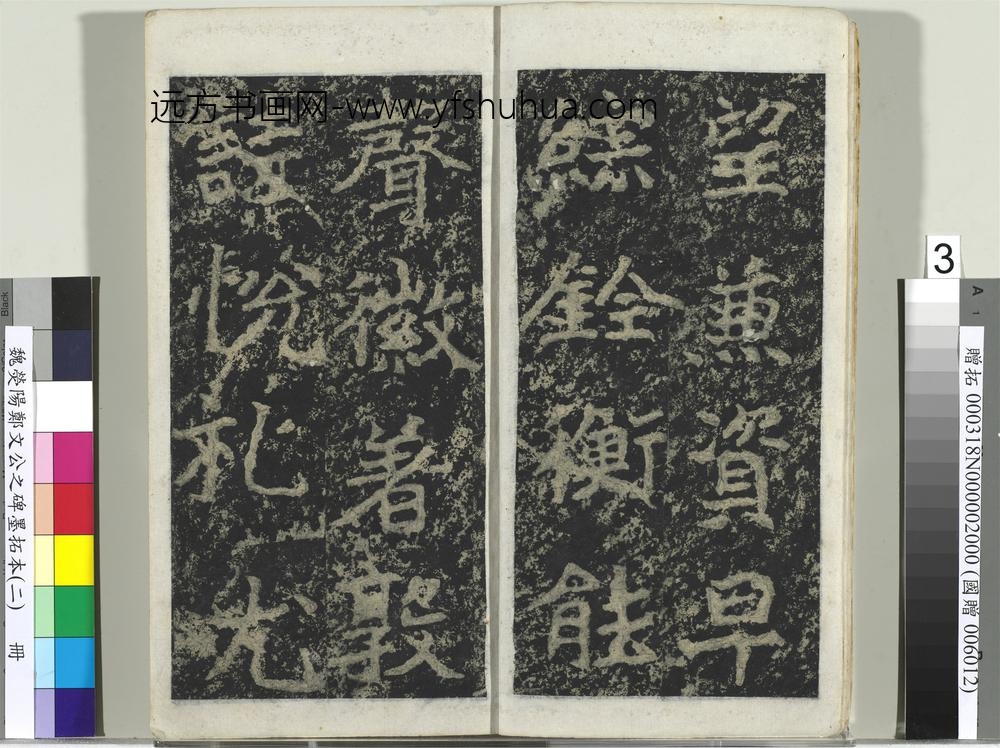 远方书画网-www.yfshuhua.com
望兼資早
綜銓衡能
聲徽著敦
詩悅礼尤
3
贈拓 000318N000002000 (國贈 006012)
魏滎陽鄭文公之碑墨拓本(二) 冊
Black
A
1